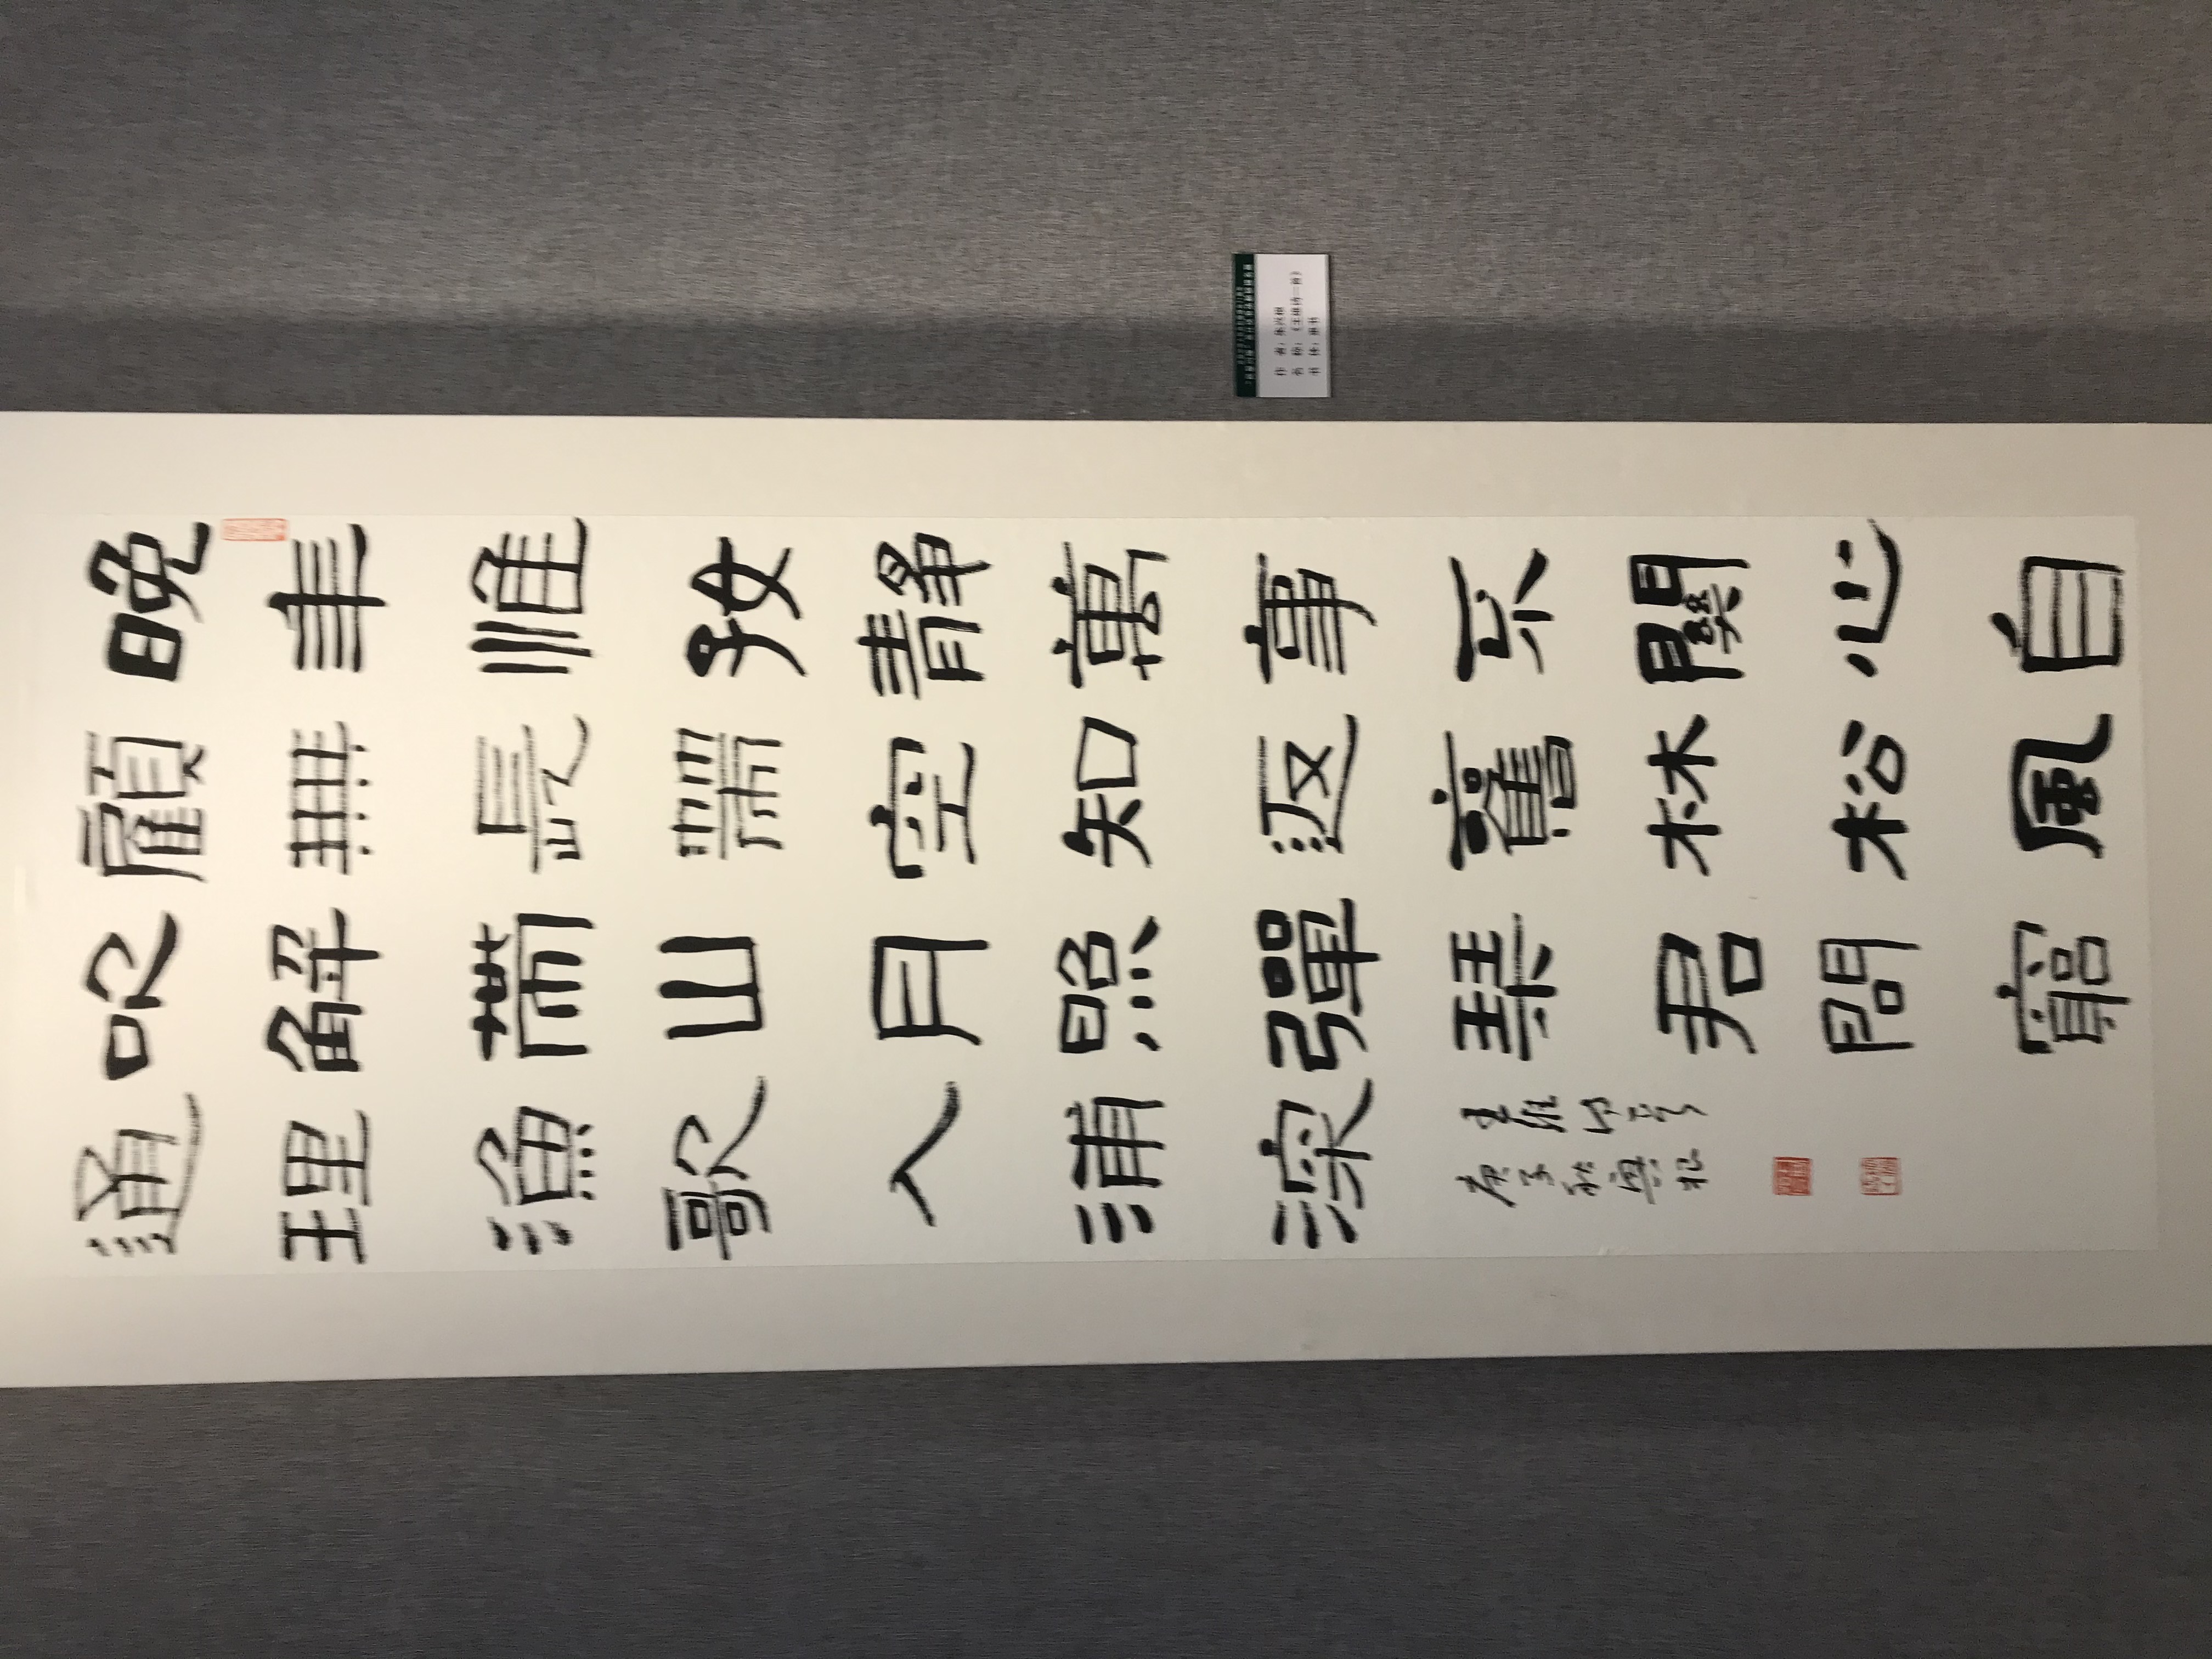 晚年惟好靜萬事不關心自
顧無長策空知返舊林松風
吹解帶山月照彈琴君問窮
通理漁歌入浦深
王維
庚子秋
作 者:
名 称:《王维诗一首》
书 体:隶书